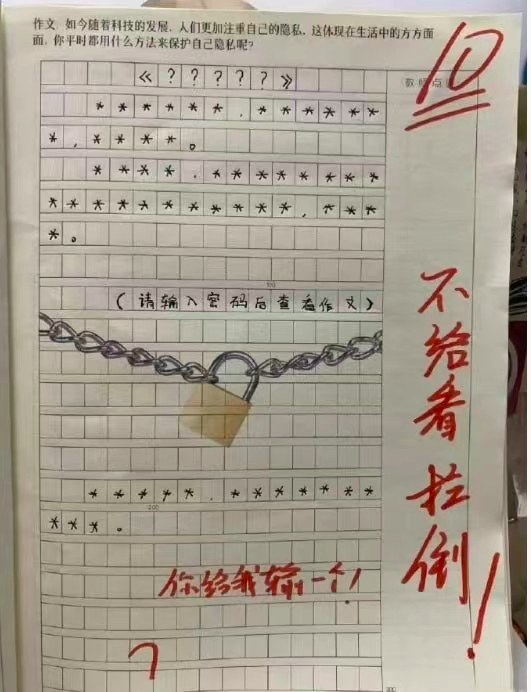 作文. 如今随着科技的发展, 人们更加注重自己的隐私, 这体现在生活中的方方面
面. 你平时都用什么方法来保护自己隐私呢?
10
《?????》
教师点
******,******
*,****。
****,********
************,***
*。
100
(请输入密码后查看作文)
不给看拉倒!
*****,*******
200
***。
你给我输一个!
300